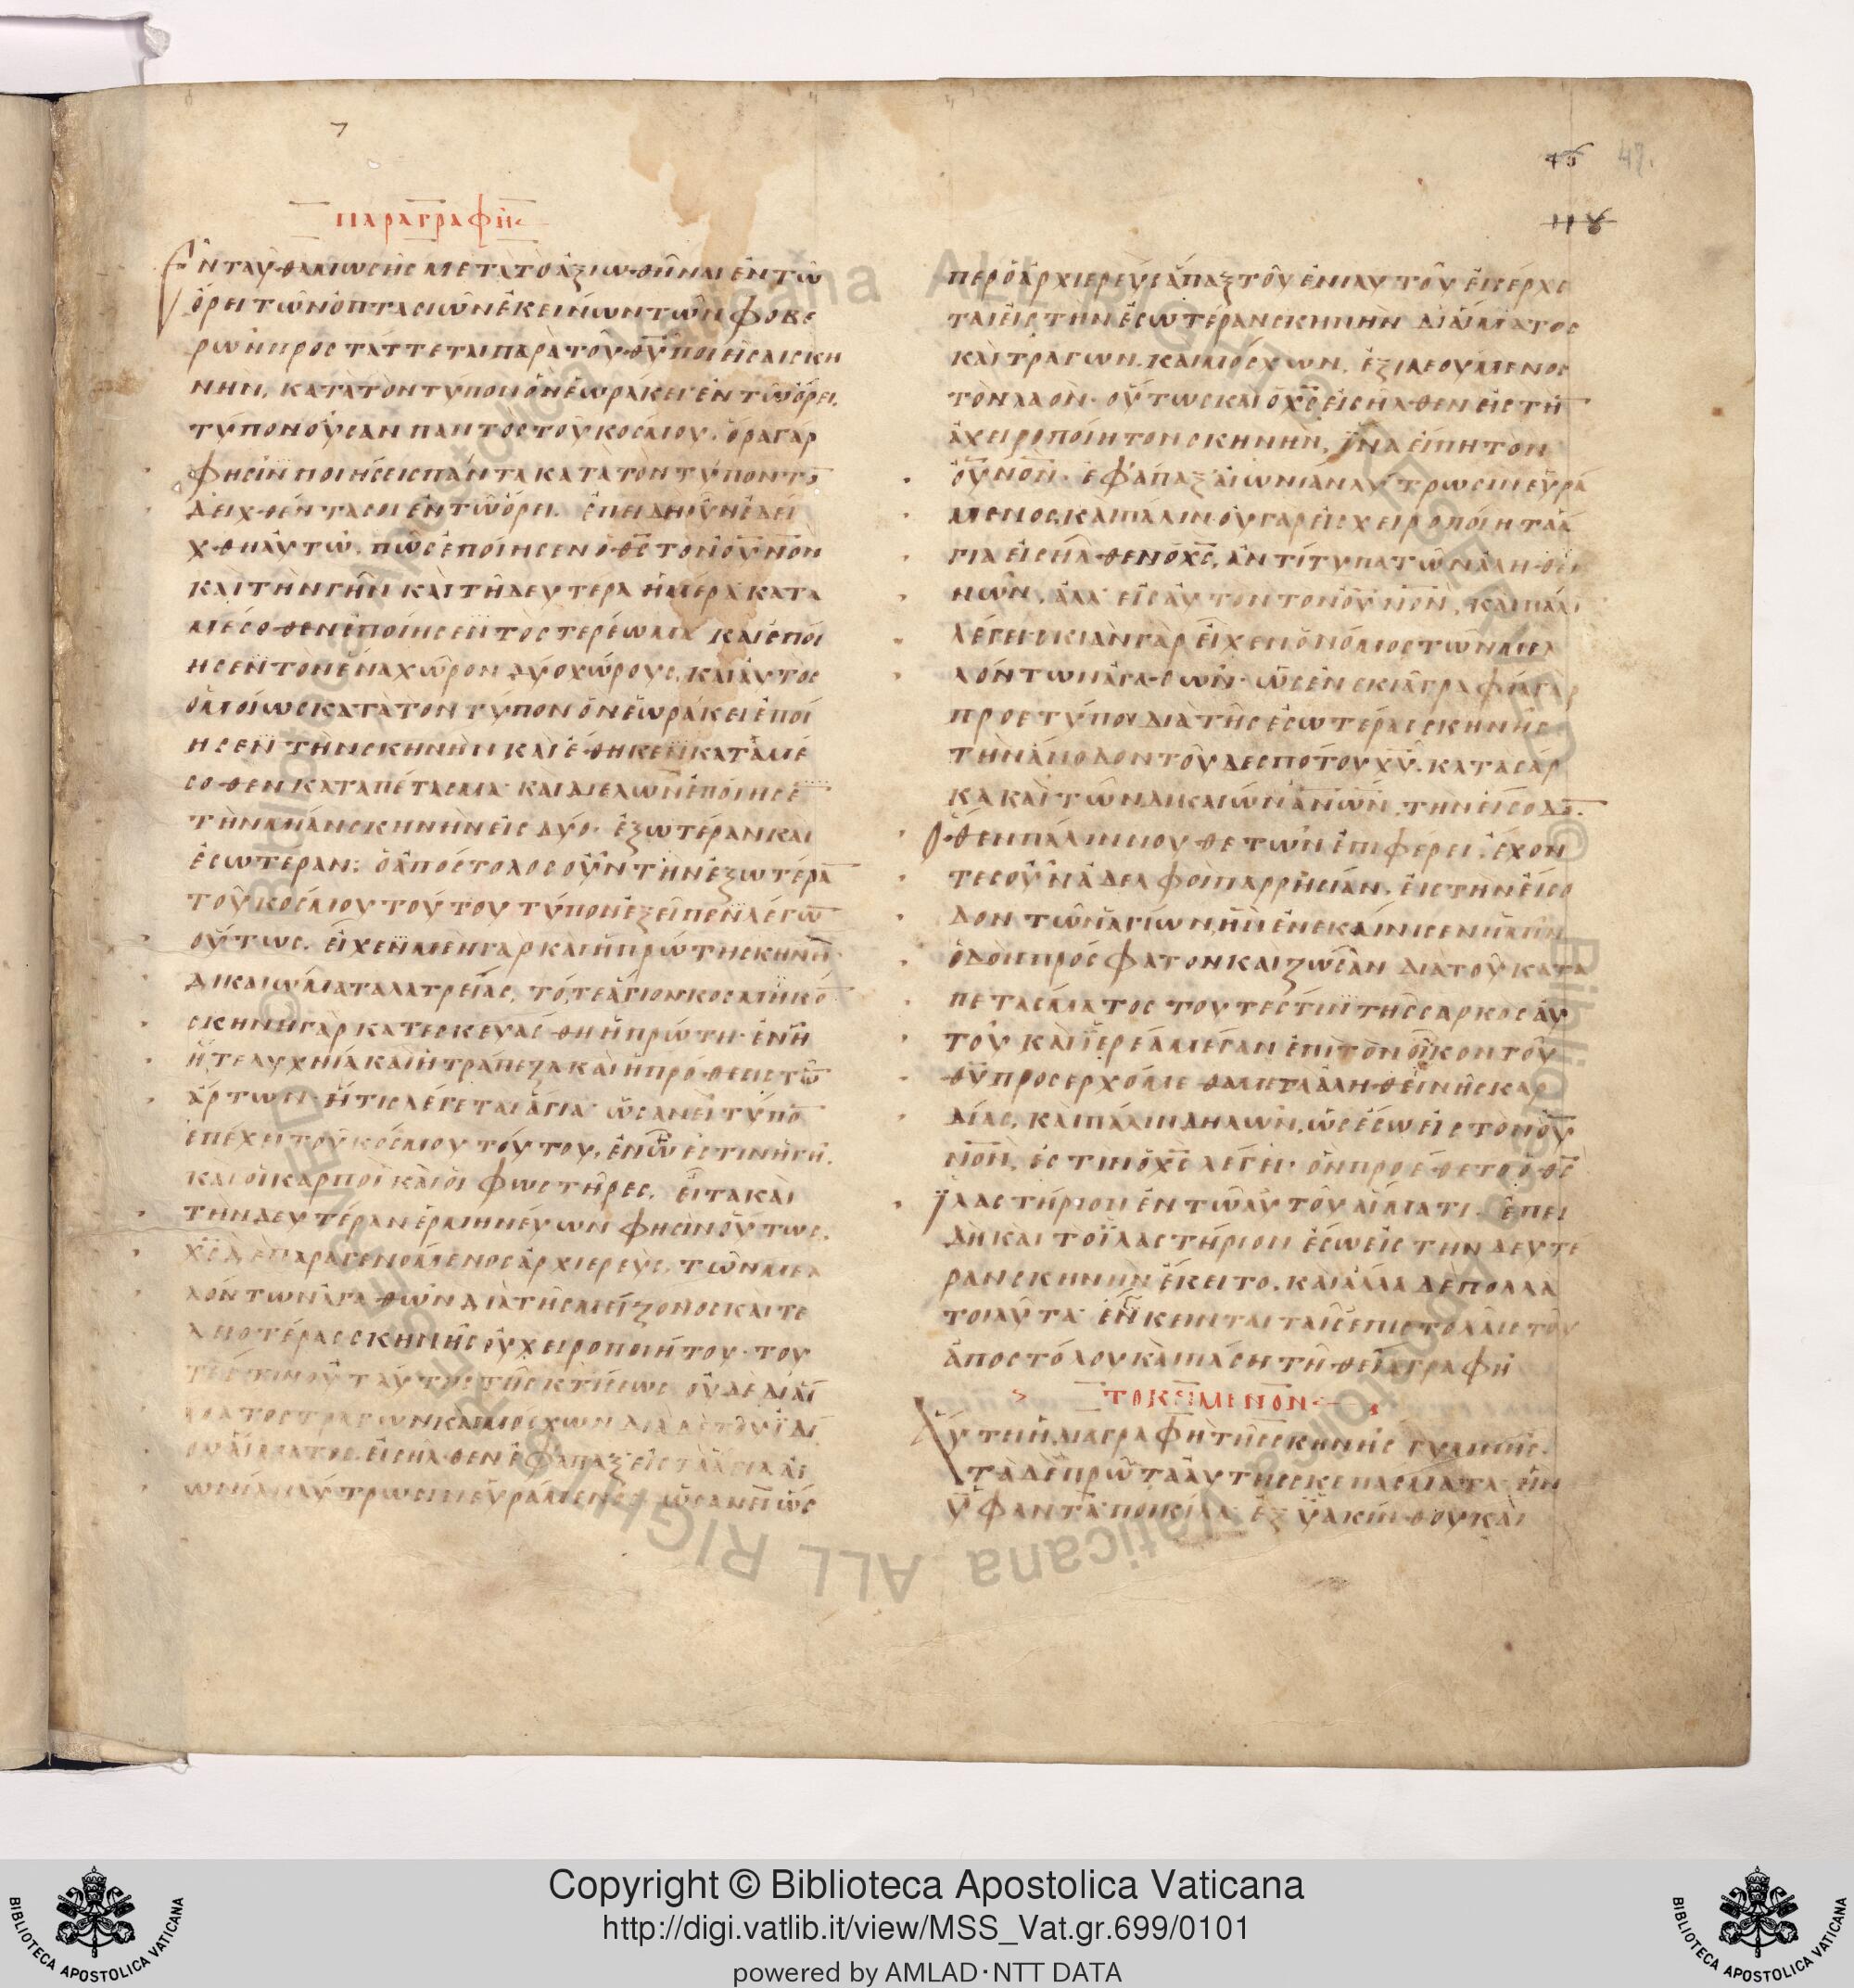 45 47.
118
ΠΑΡΑΓΡΑΦΗ
Ἐνταῦθα Μωσῆς μετὰ τὸ ἀξιωθῆναι ἐν τῶ
ὄρει τῶν ὀπτασιῶν ἐκείνων τῶν φοβε
ρῶν προστάττεται παρὰ τοῦ θῡ ποιῆσαι σκη
νὴν, κατὰ τὸν τύπον ὃν ἑωράκει ἐν τῶ ὄρει,
τύπον οὖσαν παντὸς τοῦ κόσμου. ὅρα γάρ
φησιν ποιήσεις πάντα κατὰ τὸν τύπον τὸ
δειχθέντα σοι ἐν τῶ ὄρει. ἐπειδὴ οὖν ἐδεί
χθη αὐτῶ, πῶς ἐποίησεν ὁ θς̄ τὸν οῡνον
καὶ τὴν γῆν καὶ τῆ δευτέρα ἡμέρα κατὰ
μέσοθεν ἐποίησεν τὸ στερέωμα καὶ ἐποί
ησεν τὸν ἕνα χῶρον δύο χώρους, καὶ αὐτὸς
ὁμοίως κατὰ τὸν τύπον ὃν ἑωράκει ἐποί
ησεν τὴν σκηνὴν καὶ ἔθηκεν κατὰ μέ
σοθεν καταπέτασμα καὶ διελὼν ἐποίησε
τὴν μίαν σκηνὴν εἰς δύο· ἐξωτέραν καὶ
ἐσωτέραν; ὁ ἀπόστολος οὖν τὴν ἐξωτέρα
τοῦ κόσμου τούτου τύπον ἐξεῖπεν λέγω
οὕτως. εἶχεν μὲν γὰρ καὶ ἡ πρώτη σκηνὴ
δικαιώματα λατρείας, τό, τε ἅγιον κοσμικὸ
σκηνὴ γὰρ κατεσκευάσθη ἡ πρώτη· ἐν ἧ
ἥ τε λυχνία καὶ ἡ τράπεζα καὶ ἡ πρόθεσις τῶ
ἄρτων· ἥτις λέγεται ἅγια ὡσανεὶ τύπο
ἐπέχει τοῦ κόσμου τούτου, ἐν ὧ ἐστιν ἡ γῆ,
καὶ οἱ καρποὶ καὶ οἱ φωστῆρες, εἶτα καὶ
τὴν δευτέραν ἑρμηνεύων φησὶν οὕτως.
χς̄ δὲ παραγενόμενος ἀρχιερεὺς, τῶν μελ
λόντων ἀγαθῶν διὰ τῆς μείζονος καὶ τε
λειοτέρας σκηνῆς οὐ χειροποιήτου· του
τέστιν οὐ ταύτης τῆς κτίσεως οὐδὲ δι αἵ
ματος τράγων καὶ μόσχων διὰ δὲ τοῦ ἰδί
ου αἵματος, εἰσῆλθεν ἐφάπαξ εἰς τὰ ἅγια αἰ
ωνίαν λύτρωσιν εὑράμενος ὡσανεὶ ὥς
περ ὁ ἀρχιερεὺς ἅπαξ τοῦ ἐνιαυτοῦ εἰσέρχε
ται εἰς τὴν ἐσωτέραν σκηνὴν διὰ αἵματος
καὶ τράγων. καὶ μόσχων, ἐξιλεούμενος
τὸν λαὸν· οὕτως καὶ ὁ χς̄ εἰσῆλθεν εἰς τὴ
ἀχειροποίητον σκηνὴν, ἵνα εἴπη τὸν
οῡνον· ἐφάπαξ αἰωνίαν λύτρωσιν εὑρά
μενος, καὶ πάλιν οὐ γὰρ εἰς χειροποίητα ἅ
για εἰσῆλθεν ὁ χς̄, ἀντίτυπα τῶν ἀληθι
νῶν, ἀλλ εἰς αὐτὸν τὸν οῡνον, καὶ πάλι
λέγει σκιὰν γὰρ εἶχεν ὁ νόμος τῶν μελ
λόντων ἀγαθῶν· ὡς ἐν σκιαγραφία γὰρ
προετύπου διὰ τῆς ἐσωτέρας σκηνῆς
τὴν ἄνοδον τοῦ δεσπότου χῡ, κατὰ σάρ
κα καὶ τῶν δικαίων ἀνων, τὴν εἴσοδο.
Ὅθεν πάλιν νουθετῶν ἐπιφέρει. ἔχον
τες οὖν ἀδελφοὶ παρρησίαν, εἰς τὴν εἴσο
δον τῶν ἁγίων, ἣν ἐνεκαίνισεν ἡμῖν
ὁδὸν πρόσφατον καὶ ζῶσαν διὰ τοῦ κατα
πετάσματος τουτέστιν τῆς σαρκὸς αὐ
τοῦ καὶ ἱερέα μέγαν ἐπὶ τὸν οἶκον τοῦ
θῡ προσερχόμεθα μετὰ ἀληθεινῆς καρ
δίας, καὶ πάλιν δηλῶν, ὡς ἔσω εἰς τὸν οῡ
νον, ἐστιν ὁ χς̄ λέγει· ὃν προέθετο ὁ θς̄
ἱλαστήριον ἐν τῶ αὐτοῦ αἵματι. ἐπει
δὴ καὶ τὸ ἱλαστήριον ἔσω εἰς τὴν δευτέ
ραν σκηνὴν ἔκειτο, καὶ ἄλλα δὲ πολλὰ
τοιαῦτα ἔνκεινται ταῖς ἐπιστολαῖς τοῦ
ἀποστόλου καὶ πάση τῆ θεία γραφῆ
ΤΟ ΚΕΙΜΕΝΟΝ
Αὕτη ἡ διαγραφὴ τῆς σκηνῆς γυμνῆς.
τὰ δὲ πρῶτα αὐτῆς σκεπάσματα ἦν
ὑφαντὰ ποικίλα ἐξ ὑακίνθου καὶ
Copyright © Biblioteca Apostolica Vaticana
http://digi.vatlib.it/view/MSS_Vat.gr.699/0101
powered by AMLAD·NTT DATA
BIBLIOTECA APOSTOLICA VATICANA
BIBLIOTECA APOSTOLICA VATICANA